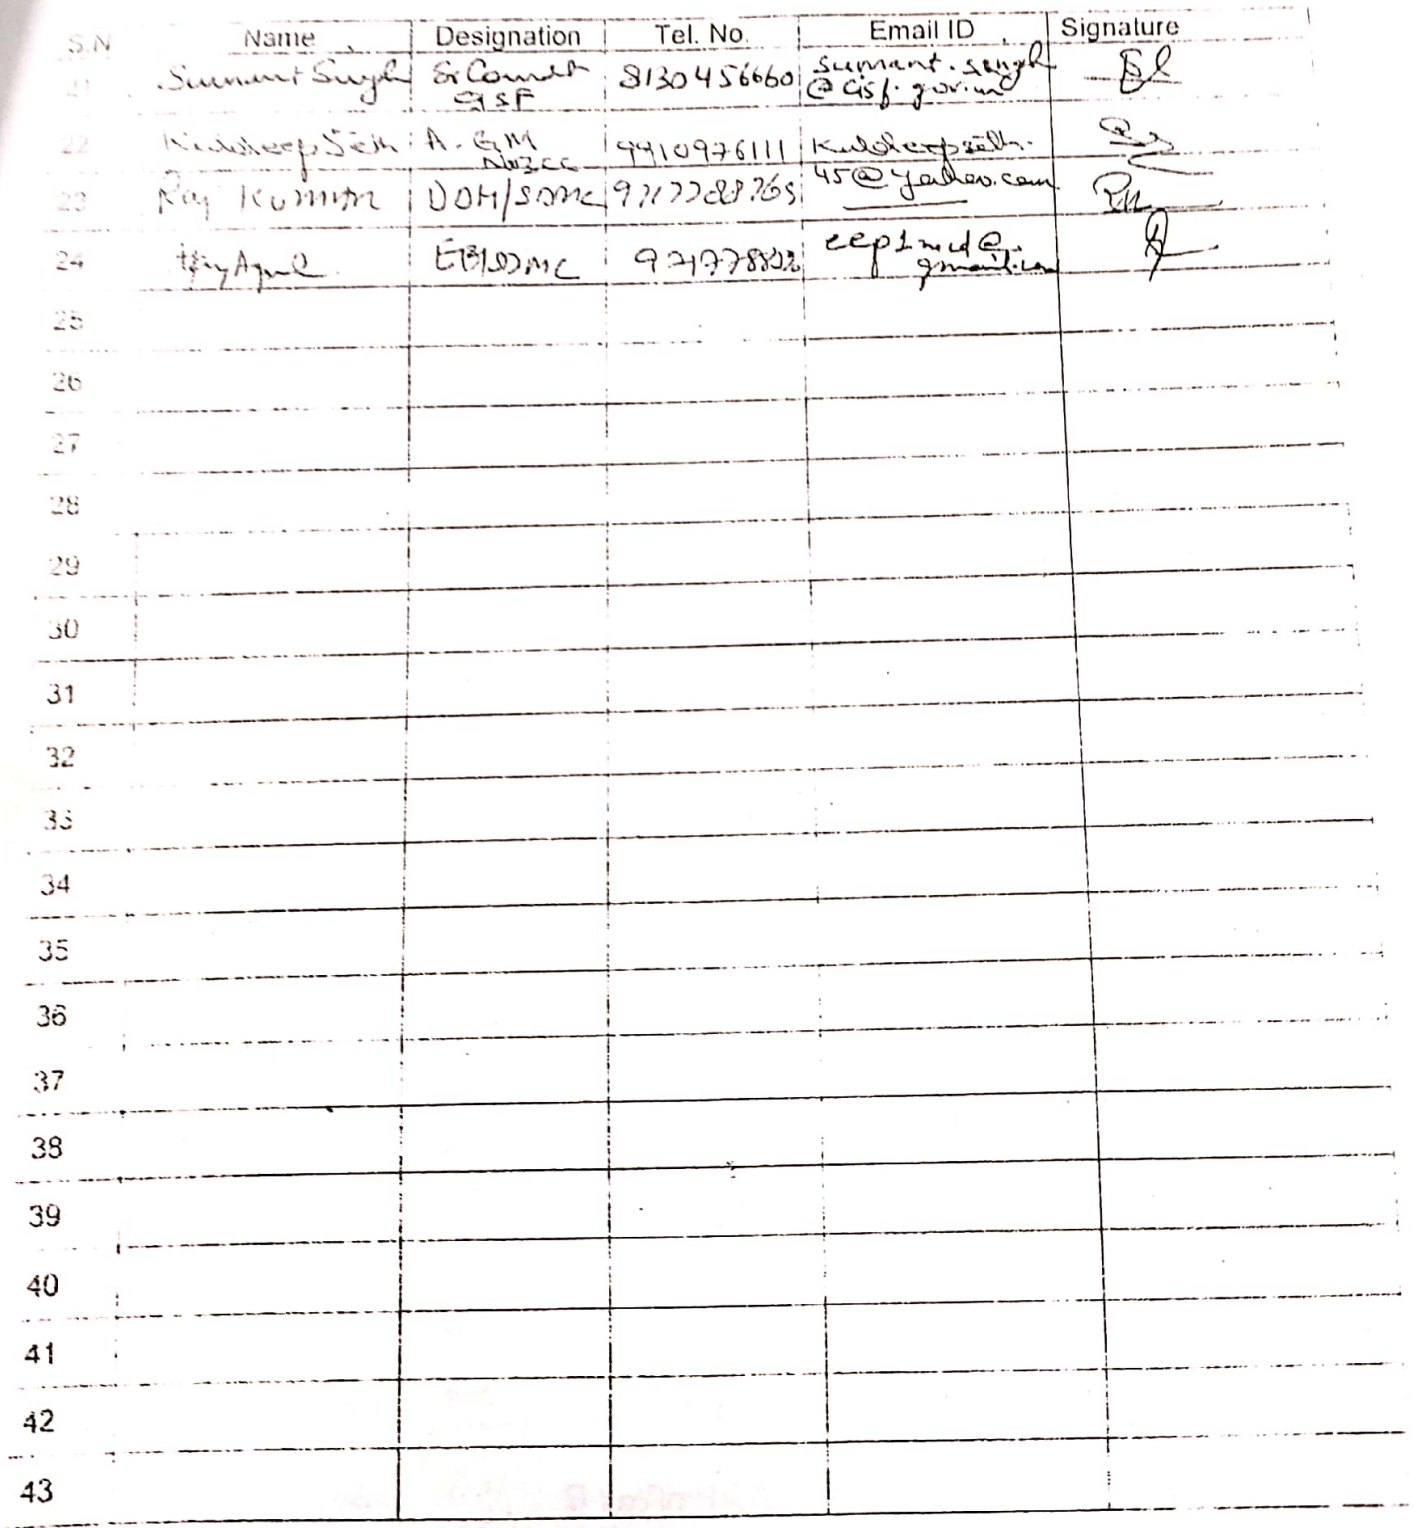 S.N Name Designation Tel. No. Email ID Signature
21 Sumant Singh Sr Comdt 8130456660 sumant.singh
CISF @cisf.gov.in
22 Kuldeep Seth A.GM 9910976111 Kuldeepseth.
45@yahoo.com
23 Raj Kumar DDH/SDMC
24 eep1mcd@
gmail.com
25
26
27
28
29
30
31
32
33
34
35
36
37
38
39
40
41
42
43